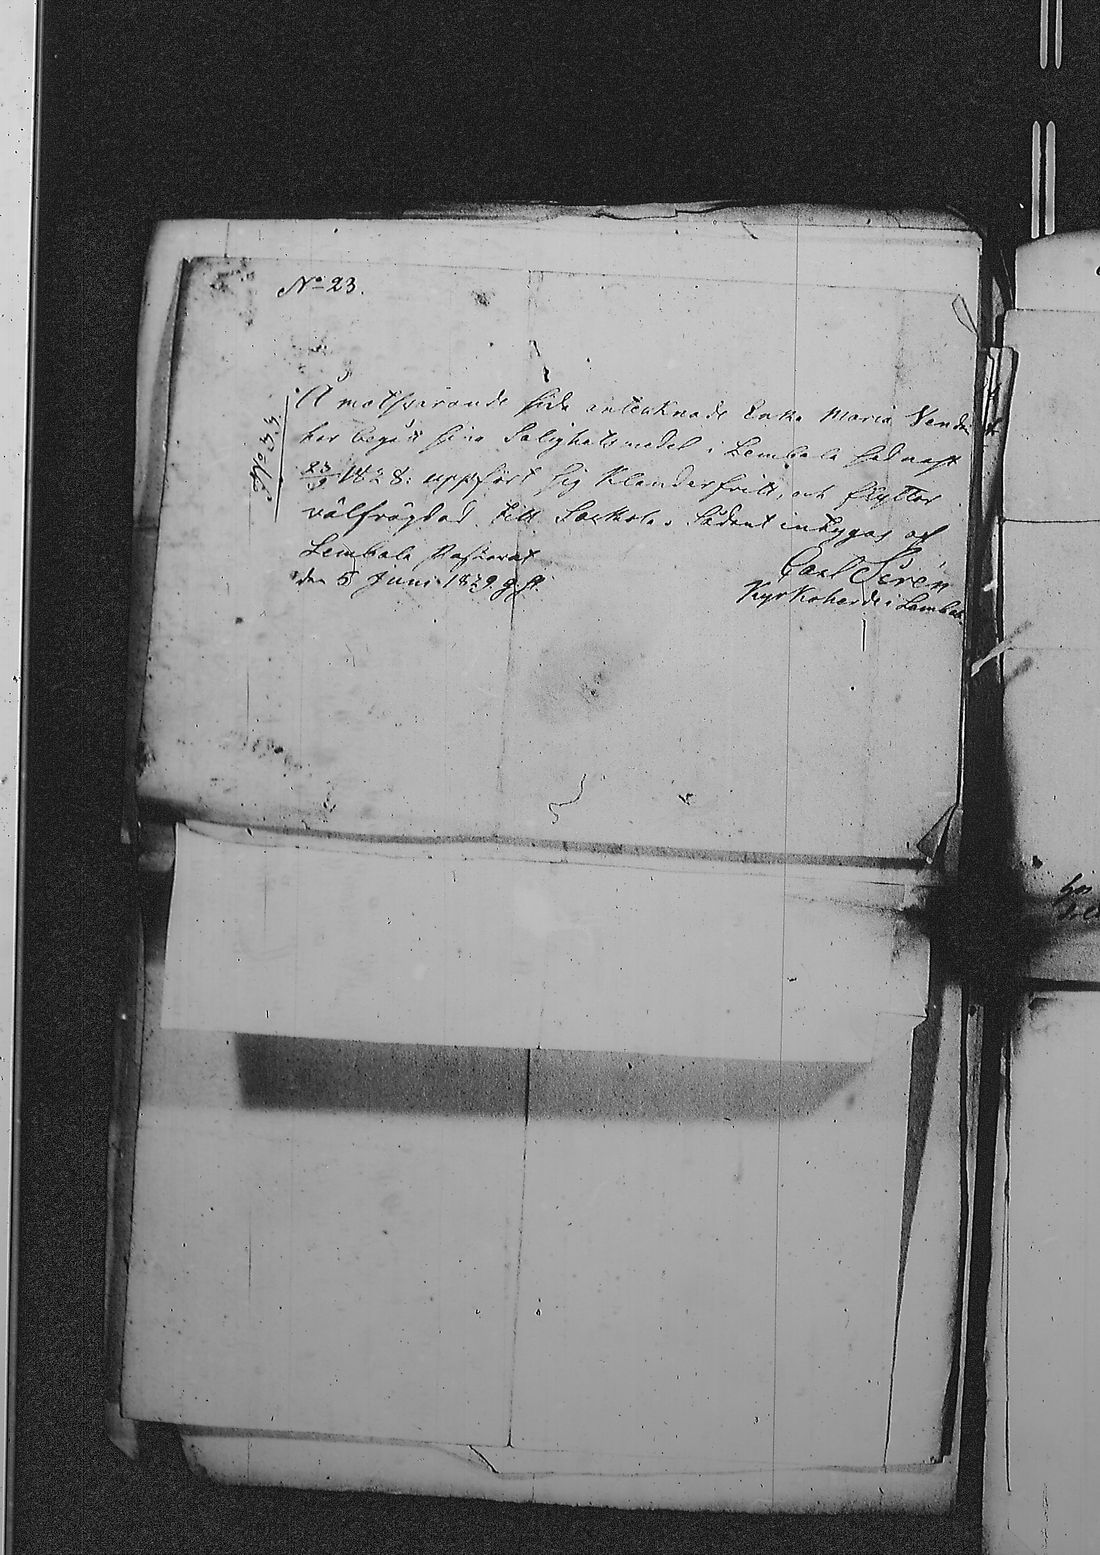 No 23.
No 33.
Å motsvarande sida antecknade Enka Maria
har begått sina Salighetsmedel i Lembala sednast
23/9 1828: uppfört sig Klanderfritt, och flyttar
välfrägdad till Sackola. Sådant intygas af
Lembala Pastorat
den 5 Juni 1829
Carl Sirén
Kyrkoherde i Lembala